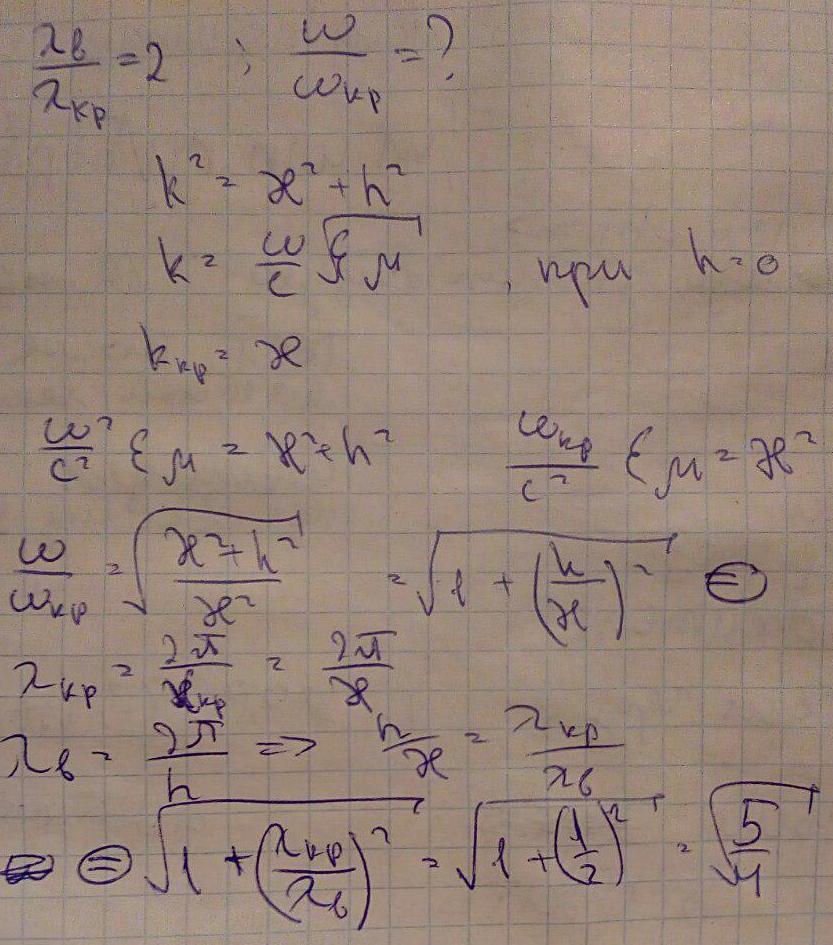 λв/λкр = 2 ; ω/ωкр = ?
k² = ϰ² + h²
k = ω/c √εμ , при h = 0
kкр = ϰ
ω²/c² εμ = ϰ² + h² ωкр/c² εμ = ϰ²
ω/ωкр = √((ϰ² + h²)/ϰ²) = √(1 + (h/ϰ)²) ⊜
λкр = 2π/kкр = 2π/ϰ
λв = 2π/h => h/ϰ = λкр/λв
⊜ √(1 + (λкр/λв)²) = √(1 + (1/2)²) = √(5/4)